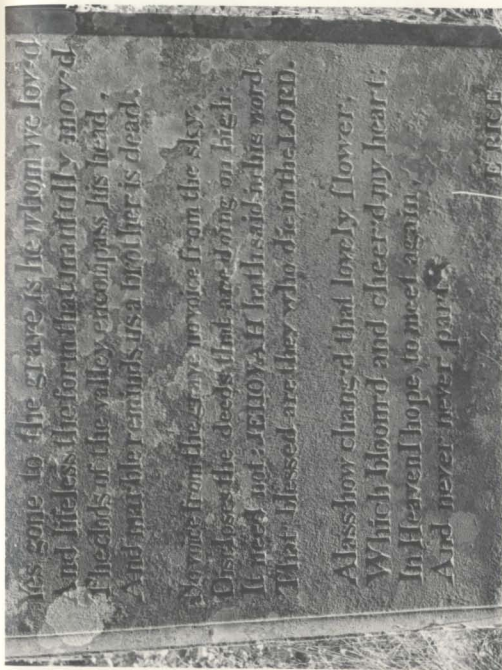 Yes gone to the grave is he whom we lov'd
And lifeless the form that manfully mov'd
The clods of the valley encompass his head,
And marble reminds us a brother is dead.
No voice from the grave no voice from the sky,
Discloses the deeds that are doing on high:
It need not: JEHOVAH hath said in his word,
That blessed are they who die in the LORD.
Alass how chang'd that lovely flower,
Which bloom'd and cheer'd my heart;
In Heaven I hope, to meet again,
And never never part.
E. RISE